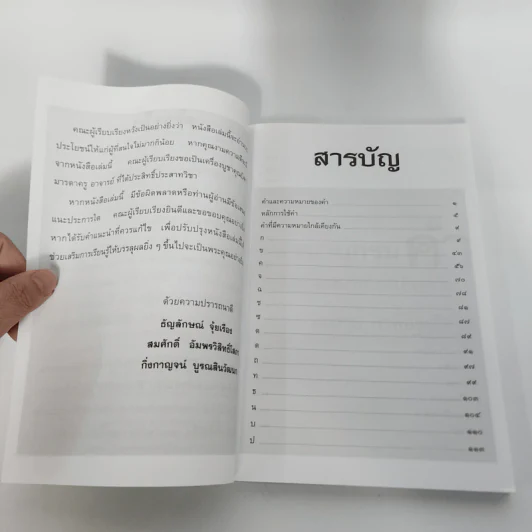 คณะผู้เรียบเรียงหวังเป็นอย่างยิ่งว่า หนังสือเล่มนี้
ประโยชน์ให้แก่ผู้ที่สนใจไม่มากก็น้อย หากคุณงามความดี
จากหนังสือเล่มนี้ คณะผู้เรียบเรียงขอเป็นเครื่องบูชาคุณ
มารดาครู อาจารย์ ที่ได้ประสิทธิ์ประสาทวิชา
หากหนังสือเล่มนี้ มีข้อผิดพลาดหรือท่านผู้อ่านมี
แนะประการใด คณะผู้เรียบเรียงยินดีและขอขอบคุณ
หากได้รับคำแนะนำที่ควรแก้ไข เพื่อปรับปรุงหนังสือเล่มนี้
ช่วยเสริมการเรียนรู้ให้บรรลุผลยิ่ง ๆ ขึ้นไปจะเป็นพระคุณ
ด้วยความปรารถนาดี
ธัญลักษณ์ จุ้ยเรือง
สมศักดิ์ อัมพรวิสิทธิ์โสภา
กิ่งกาญจน์ บูรณสินวัฒนา
สารบัญ
คำและความหมายของคำ ๑
หลักการใช้คำ ๕
คำที่มีความหมายใกล้เคียงกัน ๙
ก ๙
ข ๔๓
ค ๕๖
จ ๗๐
ฉ ๗๘
ช ๘๑
ซ ๘๗
ด ๘๘
ต ๙๑
ถ ๙๗
ท ๙๙
ธ ๑๐๓
น ๑๐๔
บ ๑๑๐
ป ๑๑๓